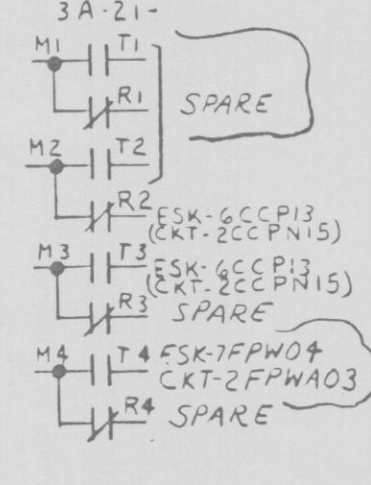 3A-21-
M1 T1
R1 SPARE
M2 T2
R2 ESK-6CCP13
(CKT-2CCPN15)
M3 T3 ESK-6CCP13
(CKT-2CCPN15)
R3 SPARE
M4 T4 ESK-7FPW04
CKT-2FPWA03
R4 SPARE